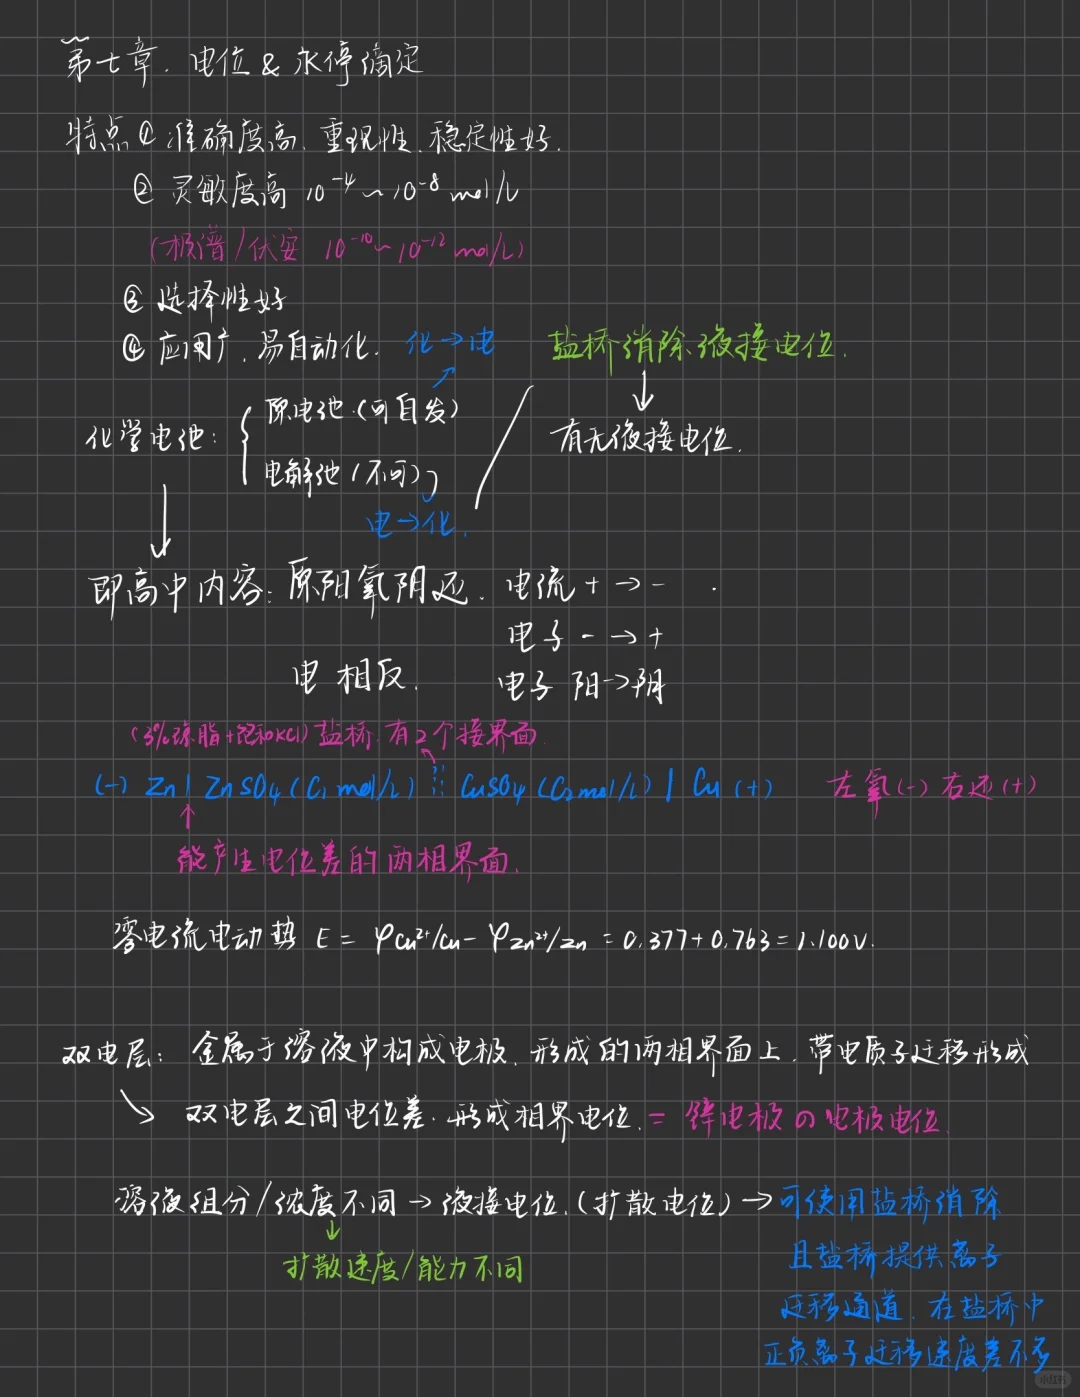 第七章. 电位 & 永停滴定
特点 ① 准确度高、重现性、稳定性好.
② 灵敏度高 10⁻⁴ ~ 10⁻⁸ mol/L
(极谱/伏安 10⁻¹⁰ ~ 10⁻¹² mol/L)
③ 选择性好
④ 应用广, 易自动化. 化→电 盐桥消除液接电位.
化学电池: { 原电池 (可自发)
有无液接电位.
电解池 (不可)
电→化.
即高中内容: 原阳氧阴还. 电流 + → - .
电子 - → +
电 相反. 电子 阳→阴
(3%琼脂+饱和KCl) 盐桥. 有2个接界面.
(-) Zn | ZnSO4 (C1 mol/L) ┊┊ CuSO4 (C2 mol/L) | Cu (+) 左氧(-) 右还(+)
↑
能产生电位差的两相界面.
零电流电动势 E = φCu²⁺/Cu - φZn²⁺/Zn = 0.377 + 0.763 = 1.100V.
双电层: 金属于溶液中构成电极, 形成的两相界面上, 带电质子迁移形成
↘ 双电层之间电位差. 形成相界电位. = 锌电极の电极电位.
溶液组分/浓度不同 → 液接电位. (扩散电位) → 可使用盐桥消除
扩散速度/能力不同
且盐桥提供离子
迁移通道. 在盐桥中
正负离子迁移速度差不多
小红书